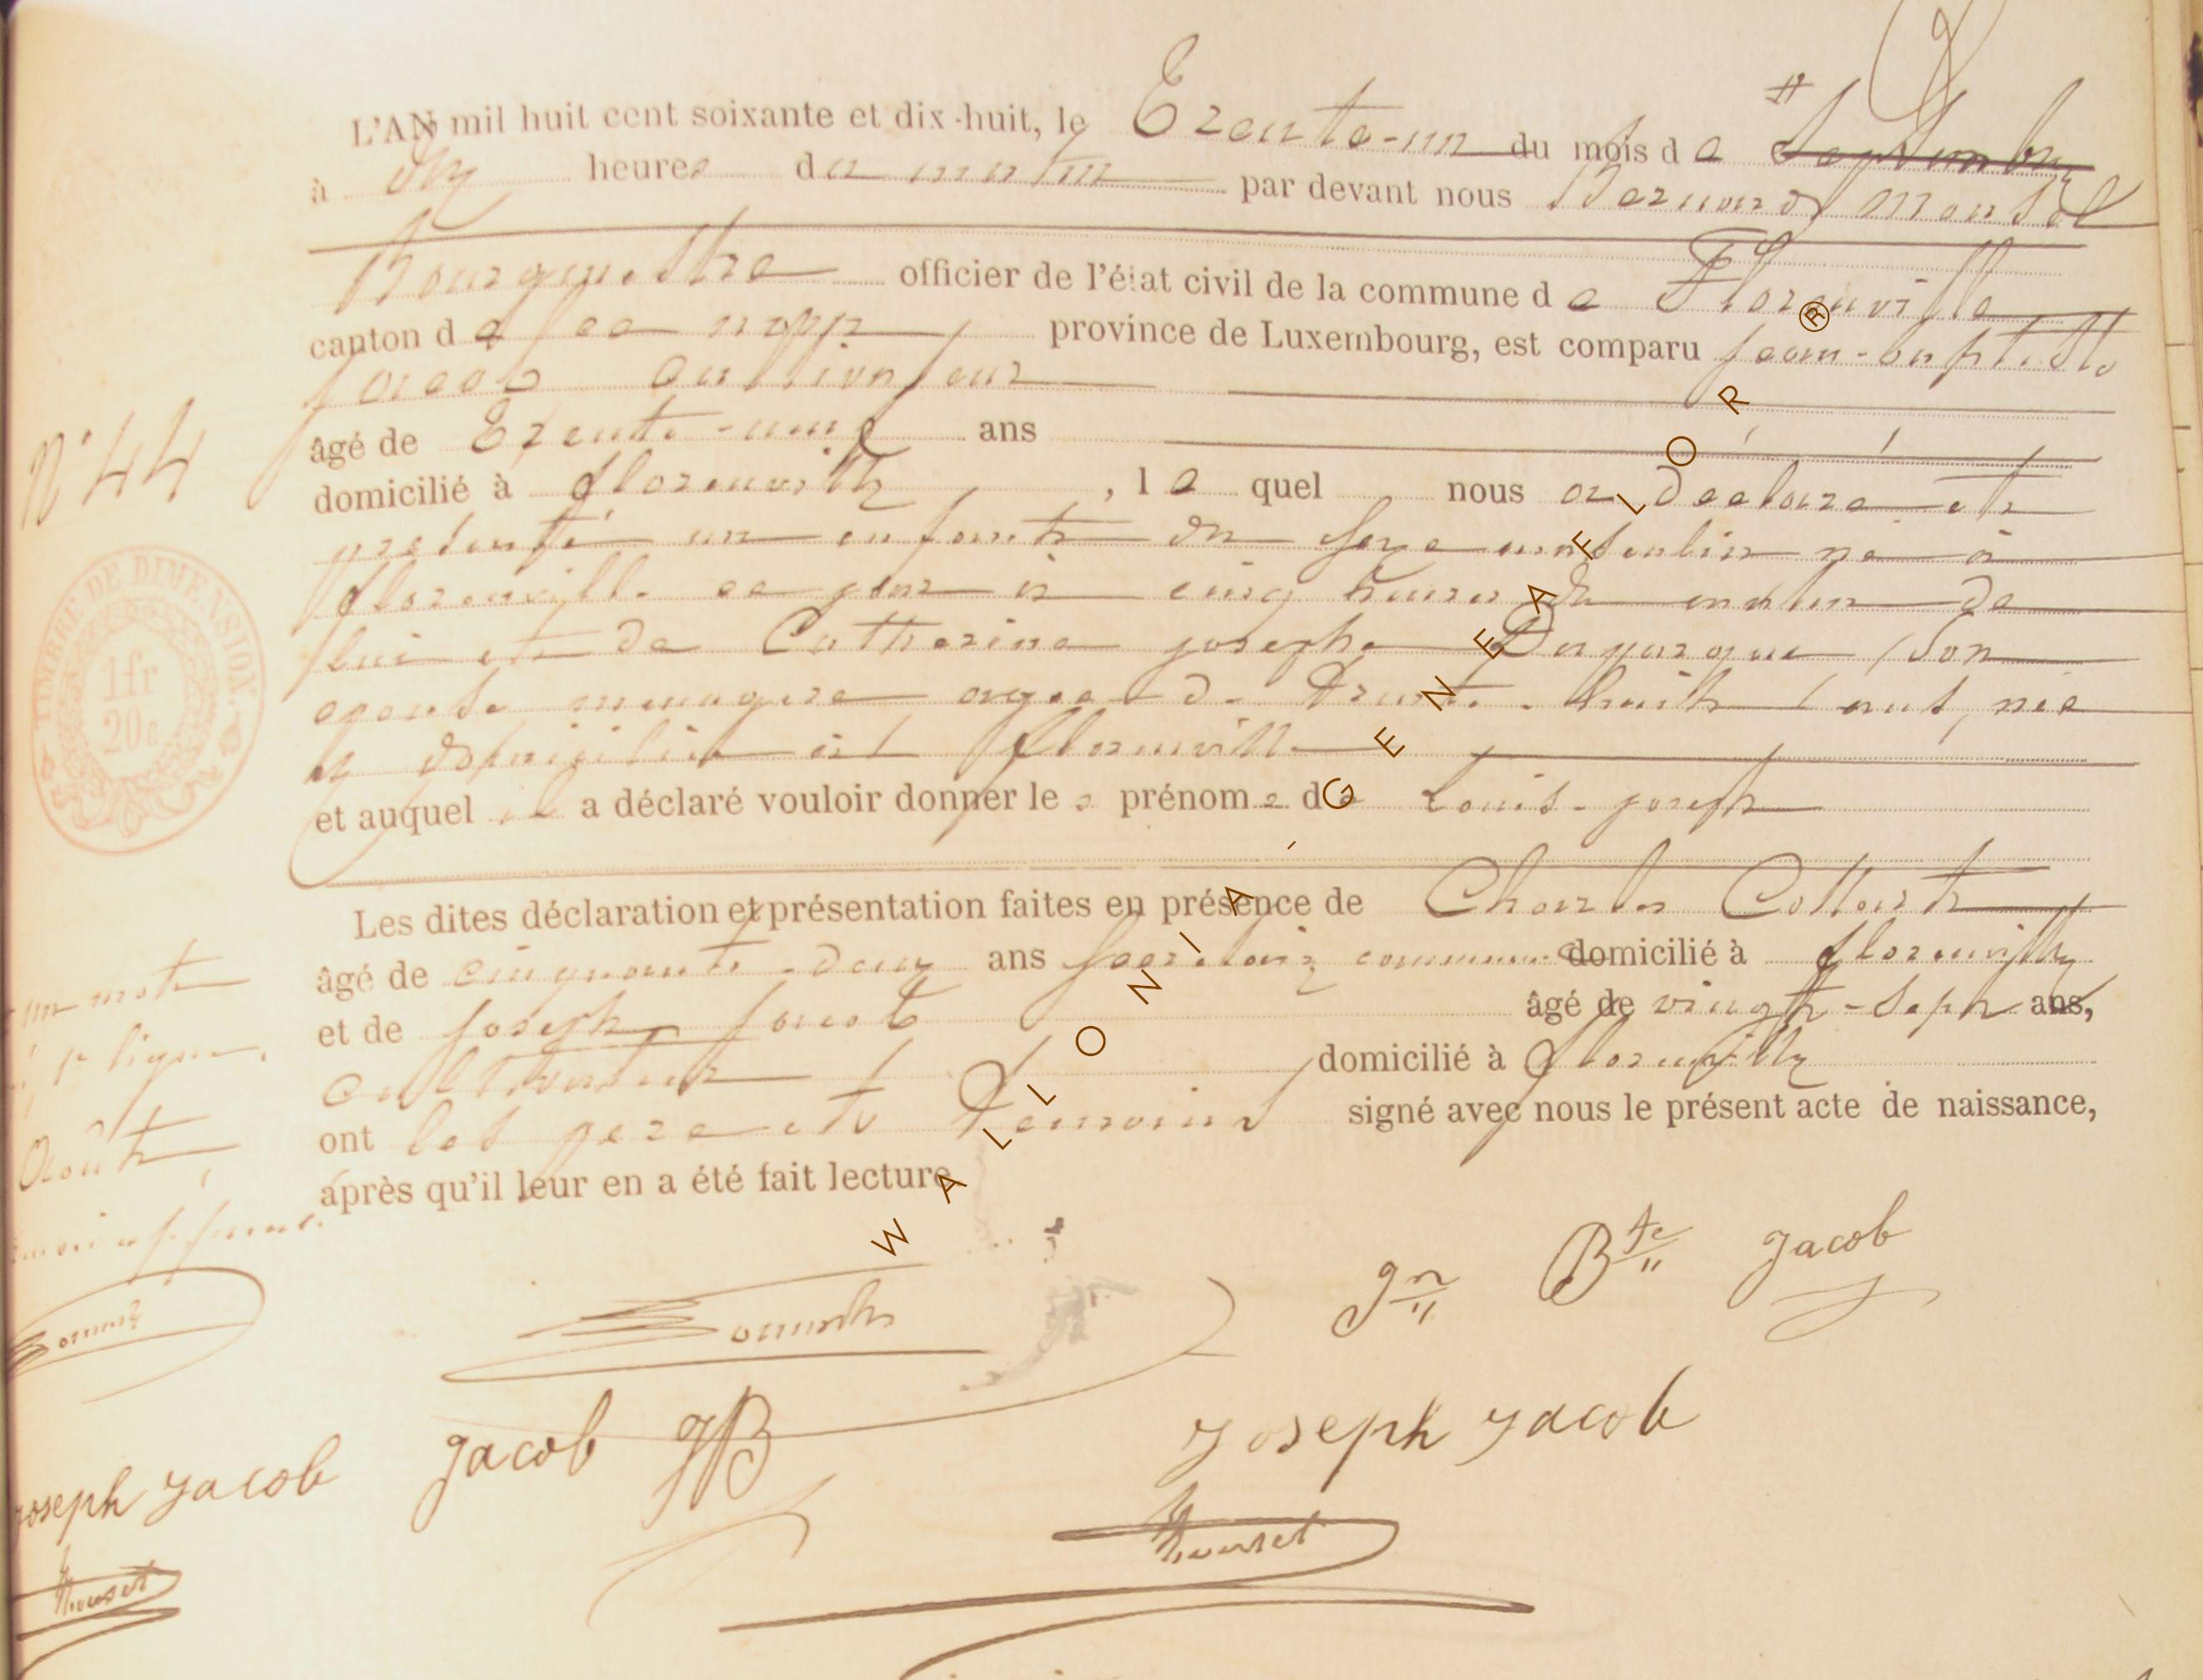 L'AN mil huit cent soixante et dix-huit, le Trente-un du mois de Septembre
à dix heures du matin par devant nous Bernard Mousel
Bourgmestre officier de l'état civil de la commune de Florenville
canton de province de Luxembourg, est comparu jean-baptiste
jacob cultivateur
âgé de Trente-une ans
N° 44
domicilié à florenville, lequel nous a déclaré et
présenté un enfant du sexe masculin né à
florenville ce jour à cinq heures du matin de
lui et de Catherine josephe son
épouse menagere agee de Trente-huit ans, née
et domiciliée à florenville
TIMBRE DE DIMENSION.
1fr
20c
et auquel il a déclaré vouloir donner les prénoms de Louis-joseph
Les dites déclaration et présentation faites en présence de Charles Collart
âgé de cinquante-deux ans secrétaire communal domicilié à florenville
et de joseph jacob âgé de vingt-sept ans,
cultivateur domicilié à florenville
ont les pere et Temoins signé avec nous le présent acte de naissance,
après qu'il leur en a été fait lecture
un mot
1e ligne
Août
jn Bte jacob
joseph jacob
joseph jacob
jacob JB
WALLONIA - GENEAFLOR ®